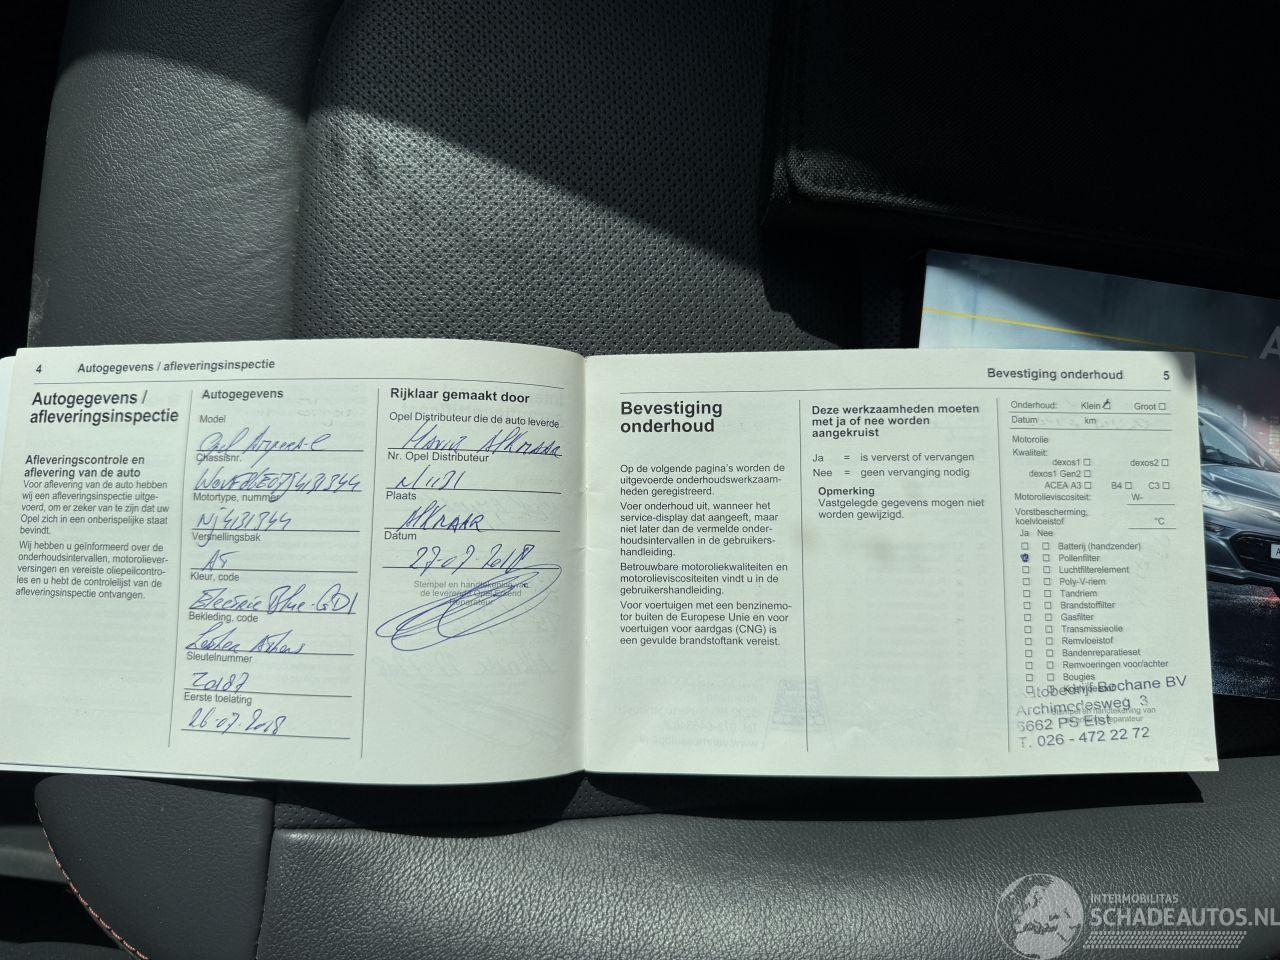 4 Autogegevens / afleveringsinspectie
Autogegevens /
afleveringsinspectie
Afleveringscontrole en
aflevering van de auto
Voor aflevering van de auto hebben
wij een afleveringsinspectie uitge-
voerd, om er zeker van te zijn dat uw
Opel zich in een onberispelijke staat
bevindt.
Wij hebben u geïnformeerd over de
onderhoudsintervallen, motoroliever-
versingen en vereiste oliepeilcontro-
les en u hebt de controlelijst van de
afleveringsinspectie ontvangen.
Autogegevens
Model
Opel
Chassisnr.
Motortype, nummer
Versnellingsbak
Kleur, code
Electric Blue-GD1
Bekleding, code
Sleutelnummer
Z0187
Eerste toelating
26-07-2018
Rijklaar gemaakt door
Opel Distributeur die de auto leverde
ALKMAAR
Nr. Opel Distributeur
Plaats
ALKMAAR
Datum
27-07-2018
Stempel en handtekening van
de leverende Opel Erkend
Reparateur
Bevestiging onderhoud 5
Bevestiging
onderhoud
Op de volgende pagina's worden de
uitgevoerde onderhoudswerkzaam-
heden geregistreerd.
Voer onderhoud uit, wanneer het
service-display dat aangeeft, maar
niet later dan de vermelde onder-
houdsintervallen in de gebruikers-
handleiding.
Betrouwbare motoroliekwaliteiten en
motorolieviscositeiten vindt u in de
gebruikershandleiding.
Voor voertuigen met een benzinemo-
tor buiten de Europese Unie en voor
voertuigen voor aardgas (CNG) is
een gevulde brandstoftank vereist.
Deze werkzaamheden moeten
met ja of nee worden
aangekruist
Ja = is ververst of vervangen
Nee = geen vervanging nodig
Opmerking
Vastgelegde gegevens mogen niet
worden gewijzigd.
Onderhoud: Klein Groot
Datum km
Motorolie
Kwaliteit:
dexos1 dexos2
dexos1 Gen2
ACEA A3 B4 C3
Motorolieviscositeit: W-
Vorstbescherming,
koelvloeistof °C
Ja Nee
Batterij (handzender)
Pollenfilter
Luchtfilterelement
Poly-V-riem
Tandriem
Brandstoffilter
Gasfilter
Transmissieolie
Remvloeistof
Bandenreparatieset
Remvoeringen voor/achter
Bougies
Autobedrijf Bochane BV
Archimedesweg 3
6662 PS Elst
T. 026 - 472 22 72
INTERMOBILITAS
SCHADEAUTOS.NL